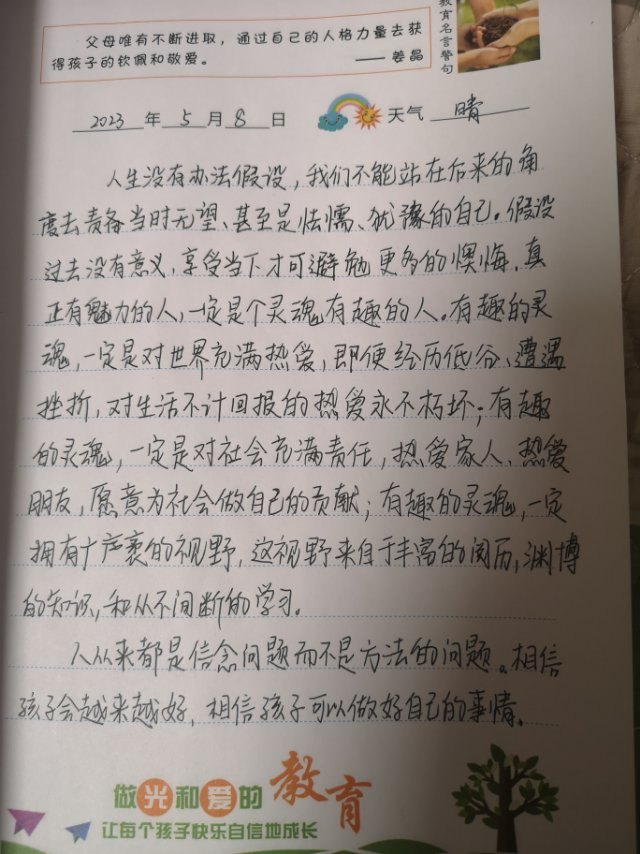 父母唯有不断进取，通过自己的人格力量去获
得孩子的钦佩和敬爱。 —— 姜晶
教育名言警句
2023 年 5 月 8 日 天气 晴
人生没有办法假设，我们不能站在后来的角
度去责备当时无望、甚至是怯懦、犹豫的自己。假设
过去没有意义，享受当下才可避免更多的懊悔。真
正有魅力的人，一定是个灵魂有趣的人。有趣的灵
魂，一定是对世界充满热爱，即便经历低谷、遭遇
挫折，对生活不计回报的热爱永不朽坏；有趣
的灵魂，一定是对社会充满责任，热爱家人、热爱
朋友，愿意为社会做自己的贡献；有趣的灵魂，一定
拥有广袤的视野，这视野来自于丰富的阅历，渊博
的知识，和从不间断的学习。
人从来都是信念问题而不是方法的问题。相信
孩子会越来越好，相信孩子可以做好自己的事情。
做光和爱的教育
让每个孩子快乐自信地成长